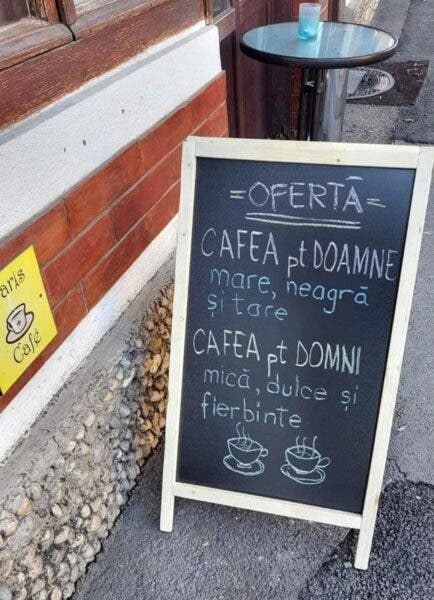 =OFERTĂ=
CAFEA pt DOAMNE
mare, neagră
și tare
CAFEA pt DOMNI
mică, dulce și
fierbinte
aris
Café